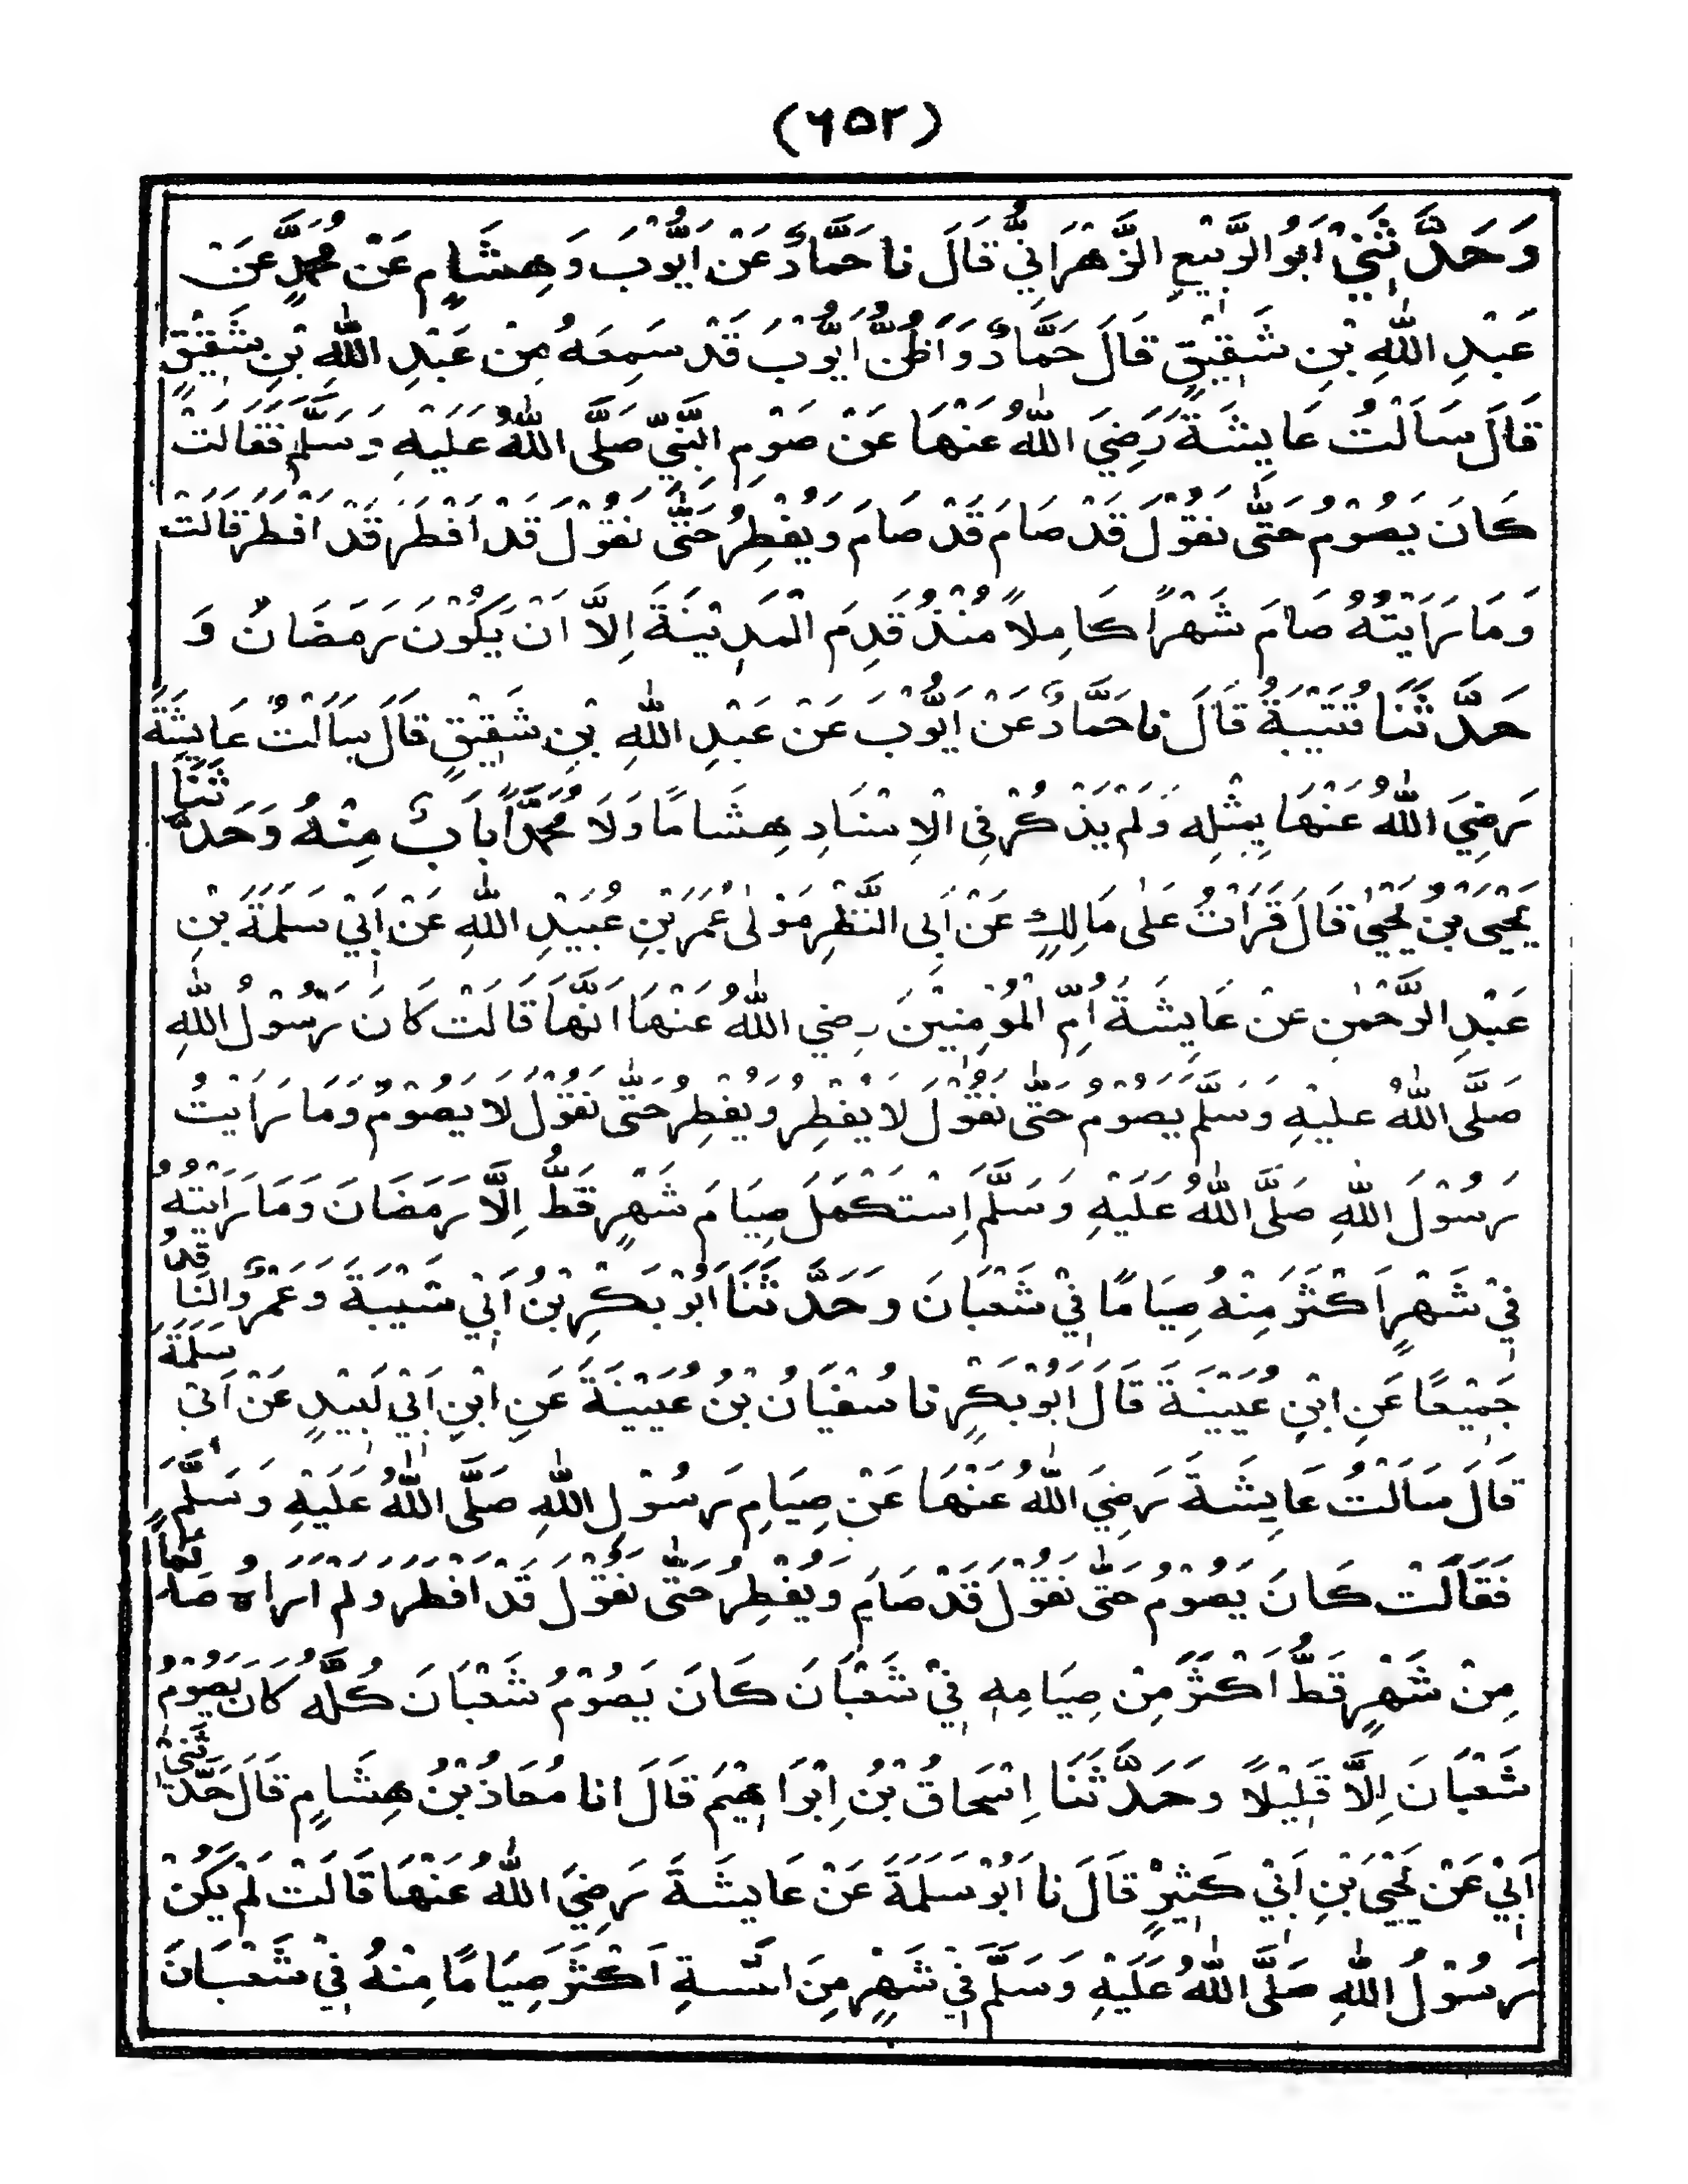 (٦٥٢)
وَحَدَّثَنِيْ اَبُو الرَّبِيْعِ الزَّهْرَانِيُّ قَالَ نا حَمَّادٌ عَنْ اَيُّوْبَ وَهِشَامٍ عَنْ مُحَمَّدٍ عَنْ
عَبْدِ اللهِ بْنِ شَقِيْقٍ قَالَ حَمَّادٌ وَاَظُنُّ اَيُّوْبَ قَدْ سَمِعَهُ مِنْ عَبْدِ اللهِ بْنِ شَقِيْقٍ
قَالَ سَاَلْتُ عَايِشَةَ رَضِيَ اللهُ عَنْهَا عَنْ صَوْمِ النَّبِيِّ صَلَّى اللهُ عَلَيْهِ وَسَلَّمَ فَقَالَتْ
كَانَ يَصُوْمُ حَتّٰى نَقُوْلَ قَدْ صَامَ قَدْ صَامَ وَيُفْطِرُ حَتّٰى نَقُوْلَ قَدْ اَفْطَرَ قَدْ اَفْطَرَ قَالَتْ
وَمَا رَاَيْتُهُ صَامَ شَهْرًا كَامِلًا مُنْذُ قَدِمَ الْمَدِيْنَةَ اِلَّا اَنْ يَكُوْنَ رَمَضَانُ وَ
حَدَّثَنَا قُتَيْبَةُ قَالَ نا حَمَّادٌ عَنْ اَيُّوْبَ عَنْ عَبْدِ اللهِ بْنِ شَقِيْقٍ قَالَ سَاَلْتُ عَايِشَةَ
رَضِيَ اللهُ عَنْهَا بِمِثْلِهِ وَلَمْ يَذْكُرْ فِى الْاِسْنَادِ هِشَامًا وَلَا مُحَمَّدًا بَابٌ مِنْهُ وَحَدَّثَنَا
يَحْيَى بْنُ يَحْيٰى قَالَ قَرَأْتُ عَلٰى مَالِكٍ عَنْ اَبِى النَّضْرِ مَوْلٰى عُمَرَ بْنِ عُبَيْدِ اللهِ عَنْ اَبِيْ سَلَمَةَ بْنِ
عَبْدِ الرَّحْمٰنِ عَنْ عَايِشَةَ اُمِّ الْمُؤْمِنِيْنَ رضي اللهُ عَنْهَا اَنَّهَا قَالَتْ كَانَ رَسُوْلُ اللهِ
صَلَّى اللهُ عَلَيْهِ وَسَلَّمَ يَصُوْمُ حَتّٰى نَقُوْلَ لَا يُفْطِرُ وَيُفْطِرُ حَتّٰى نَقُوْلَ لَا يَصُوْمُ وَمَا رَاَيْتُ
رَسُوْلَ اللهِ صَلَّى اللهُ عَلَيْهِ وَسَلَّمَ اِسْتَكْمَلَ صِيَامَ شَهْرٍ قَطُّ اِلَّا رَمَضَانَ وَمَا رَاَيْتُهُ
فِيْ شَهْرٍ اَكْثَرَ مِنْهُ صِيَامًا فِيْ شَعْبَانَ وَحَدَّثَنَا اَبُوْ بَكْرِ بْنُ اَبِيْ شَيْبَةَ وَعَمْرٌو النَّاقِدُ
جَمِيْعًا عَنِ ابْنِ عُيَيْنَةَ قَالَ اَبُوْ بَكْرٍ نا سُفْيَانُ بْنُ عُيَيْنَةَ عَنِ ابْنِ اَبِيْ لَبِيْدٍ عَنْ اَبِيْ سَلَمَةَ
قَالَ سَاَلْتُ عَايِشَةَ رَضِيَ اللهُ عَنْهَا عَنْ صِيَامِ رَسُوْلِ اللهِ صَلَّى اللهُ عَلَيْهِ وَسَلَّمَ
فَقَالَتْ كَانَ يَصُوْمُ حَتّٰى نَقُوْلَ قَدْ صَامَ وَيُفْطِرُ حَتّٰى نَقُوْلَ قَدْ اَفْطَرَ وَلَمْ اَرَاهُ صَائِمًا
مِنْ شَهْرٍ قَطُّ اَكْثَرَ مِنْ صِيَامِهِ فِيْ شَعْبَانَ كَانَ يَصُوْمُ شَعْبَانَ كُلَّهُ كَانَ يَصُوْمُ
شَعْبَانَ اِلَّا قَلِيْلًا وَحَدَّثَنَا اِسْحَاقُ بْنُ اِبْرَاهِيْمَ قَالَ انا مُعَاذُ بْنُ هِشَامٍ قَالَ حَدَّثَنِيْ
اَبِيْ عَنْ يَحْيَى بْنِ اَبِيْ كَثِيْرٍ قَالَ نا اَبُوْ سَلَمَةَ عَنْ عَايِشَةَ رَضِيَ اللهُ عَنْهَا قَالَتْ لَمْ يَكُنْ
رَسُوْلُ اللهِ صَلَّى اللهُ عَلَيْهِ وَسَلَّمَ فِيْ شَهْرٍ مِنَ السَّنَةِ اَكْثَرَ صِيَامًا مِنْهُ فِيْ شَعْبَانَ